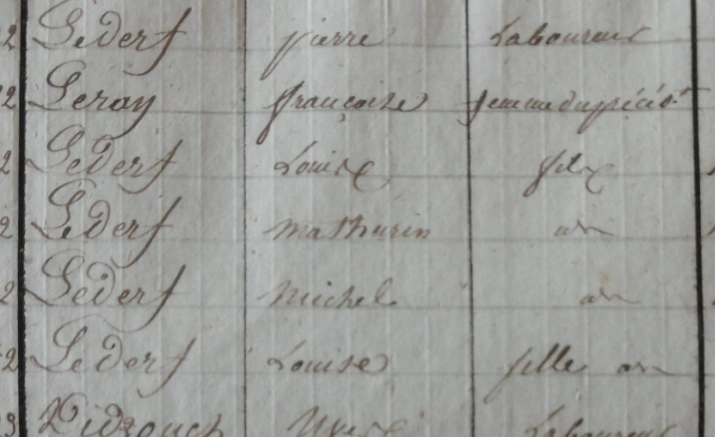 2 Lederf pierre Laboureur
2 Leray françoise femme du préçéd.t
2 Lederf Louis fils
2 Lederf mathurin an
2 Lederf michel an
2 Lederf Louise fille an
3 Laboureur